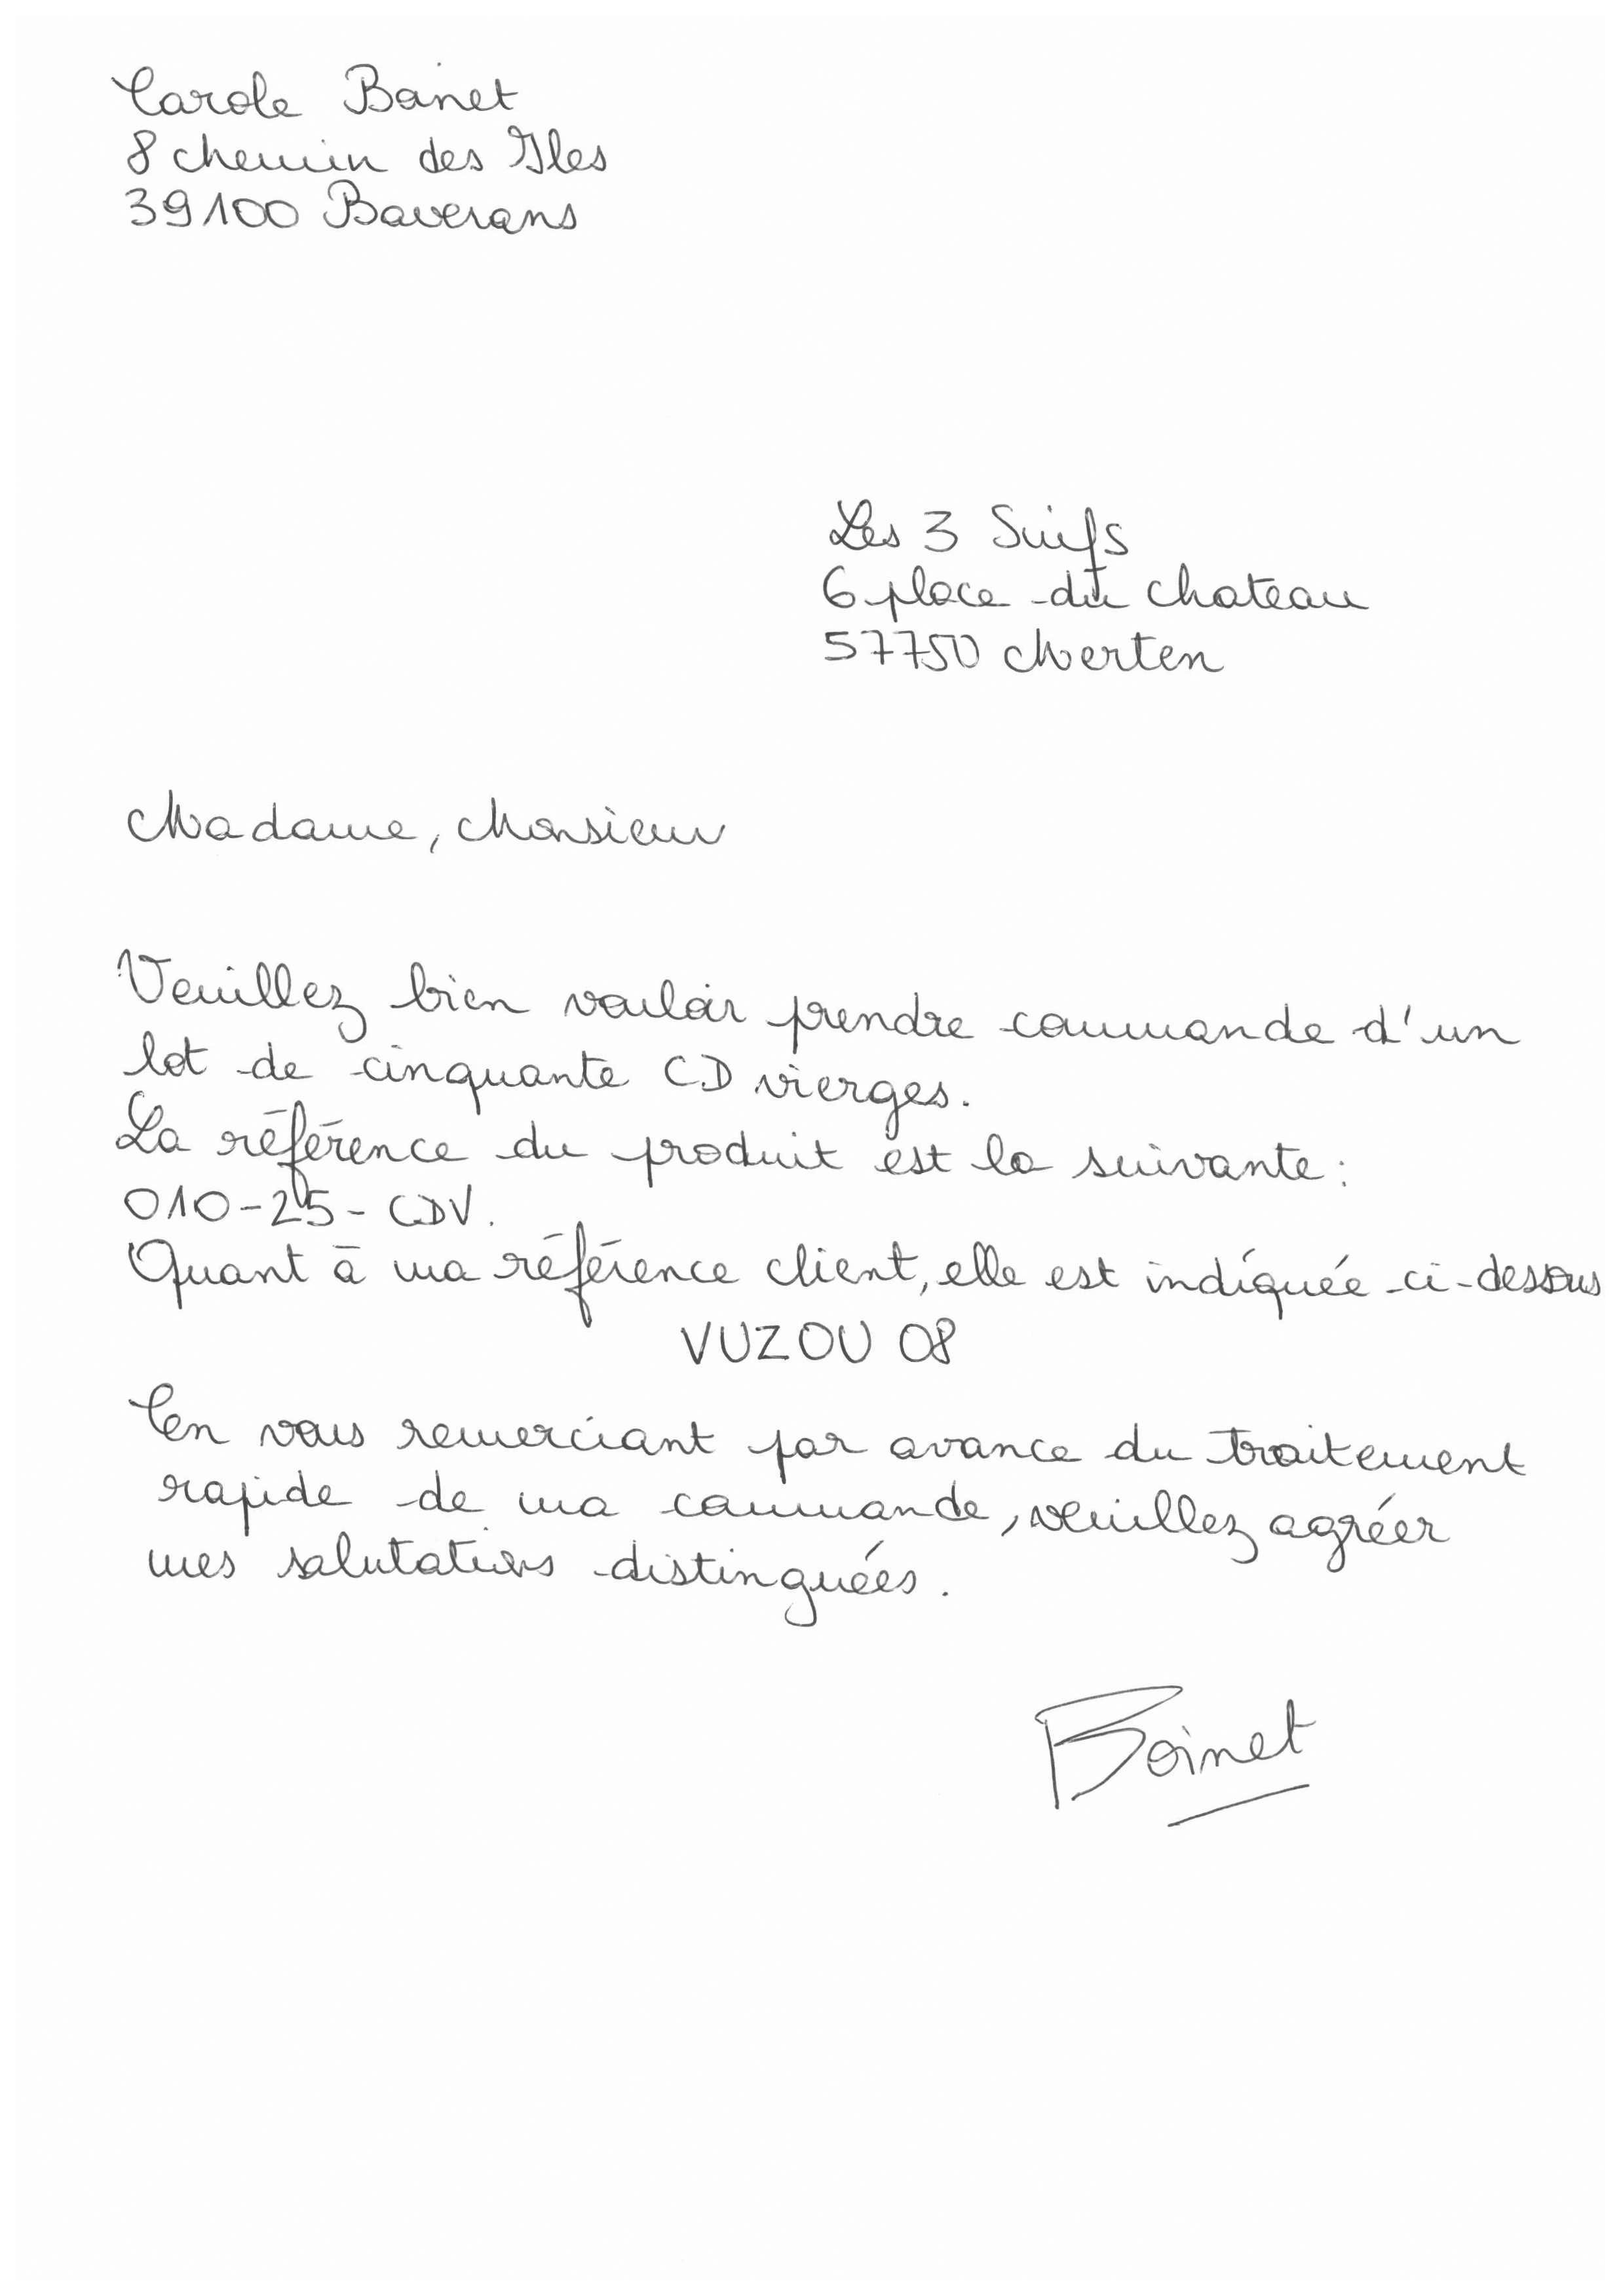 Carole Boinet
8 chemin des Iles
39100 Baverans
Les 3 Suifs
6 place du chateau
57750 Merten
Madame, Monsieur
Veuillez bien vouloir prendre commande d'un
lot de cinquante CD vierges.
La référence du produit est la suivante :
010-25-CDV.
Quant à ma référence client, elle est indiquée ci-dessous
VUZOU 08
En vous remerciant par avance du traitement
rapide de ma commande, veuillez agréer
mes salutations distinguées.
Boinet